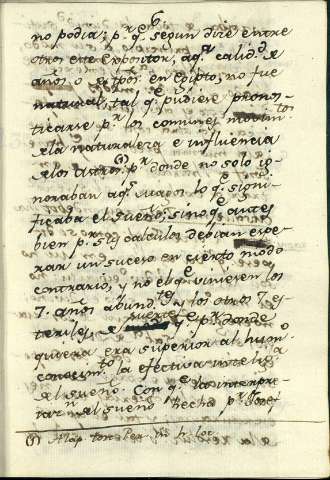 6
no podia; p.r q.e segun dize entre
otros este Expositor, aq.a calid.d de
años o de tpõs. en Egipto, no fue
natural, tal q.e pudiese pronos-
ticarse p.r los comunes movim.tos
de la naturaleza e influencia
de los Astros (1) p.r donde no solo ig-
noraban aq.s Magos lo q.e signi-
ficaba el sueño; sino q.e antes
bien p.r sus calculos debian espe-
rar un suceso en cierto modo
contrario, y no el q.e viniesen los
7. años abund.tes y los otros 7. es-
teriles, de suerte q.e p.r donde
quiera era superior al hum.o
conocim.to la efectiva intelig.a
del sueño. Con q.e la interpre-
tac.n del sueño hecha p.r Josef
(1)